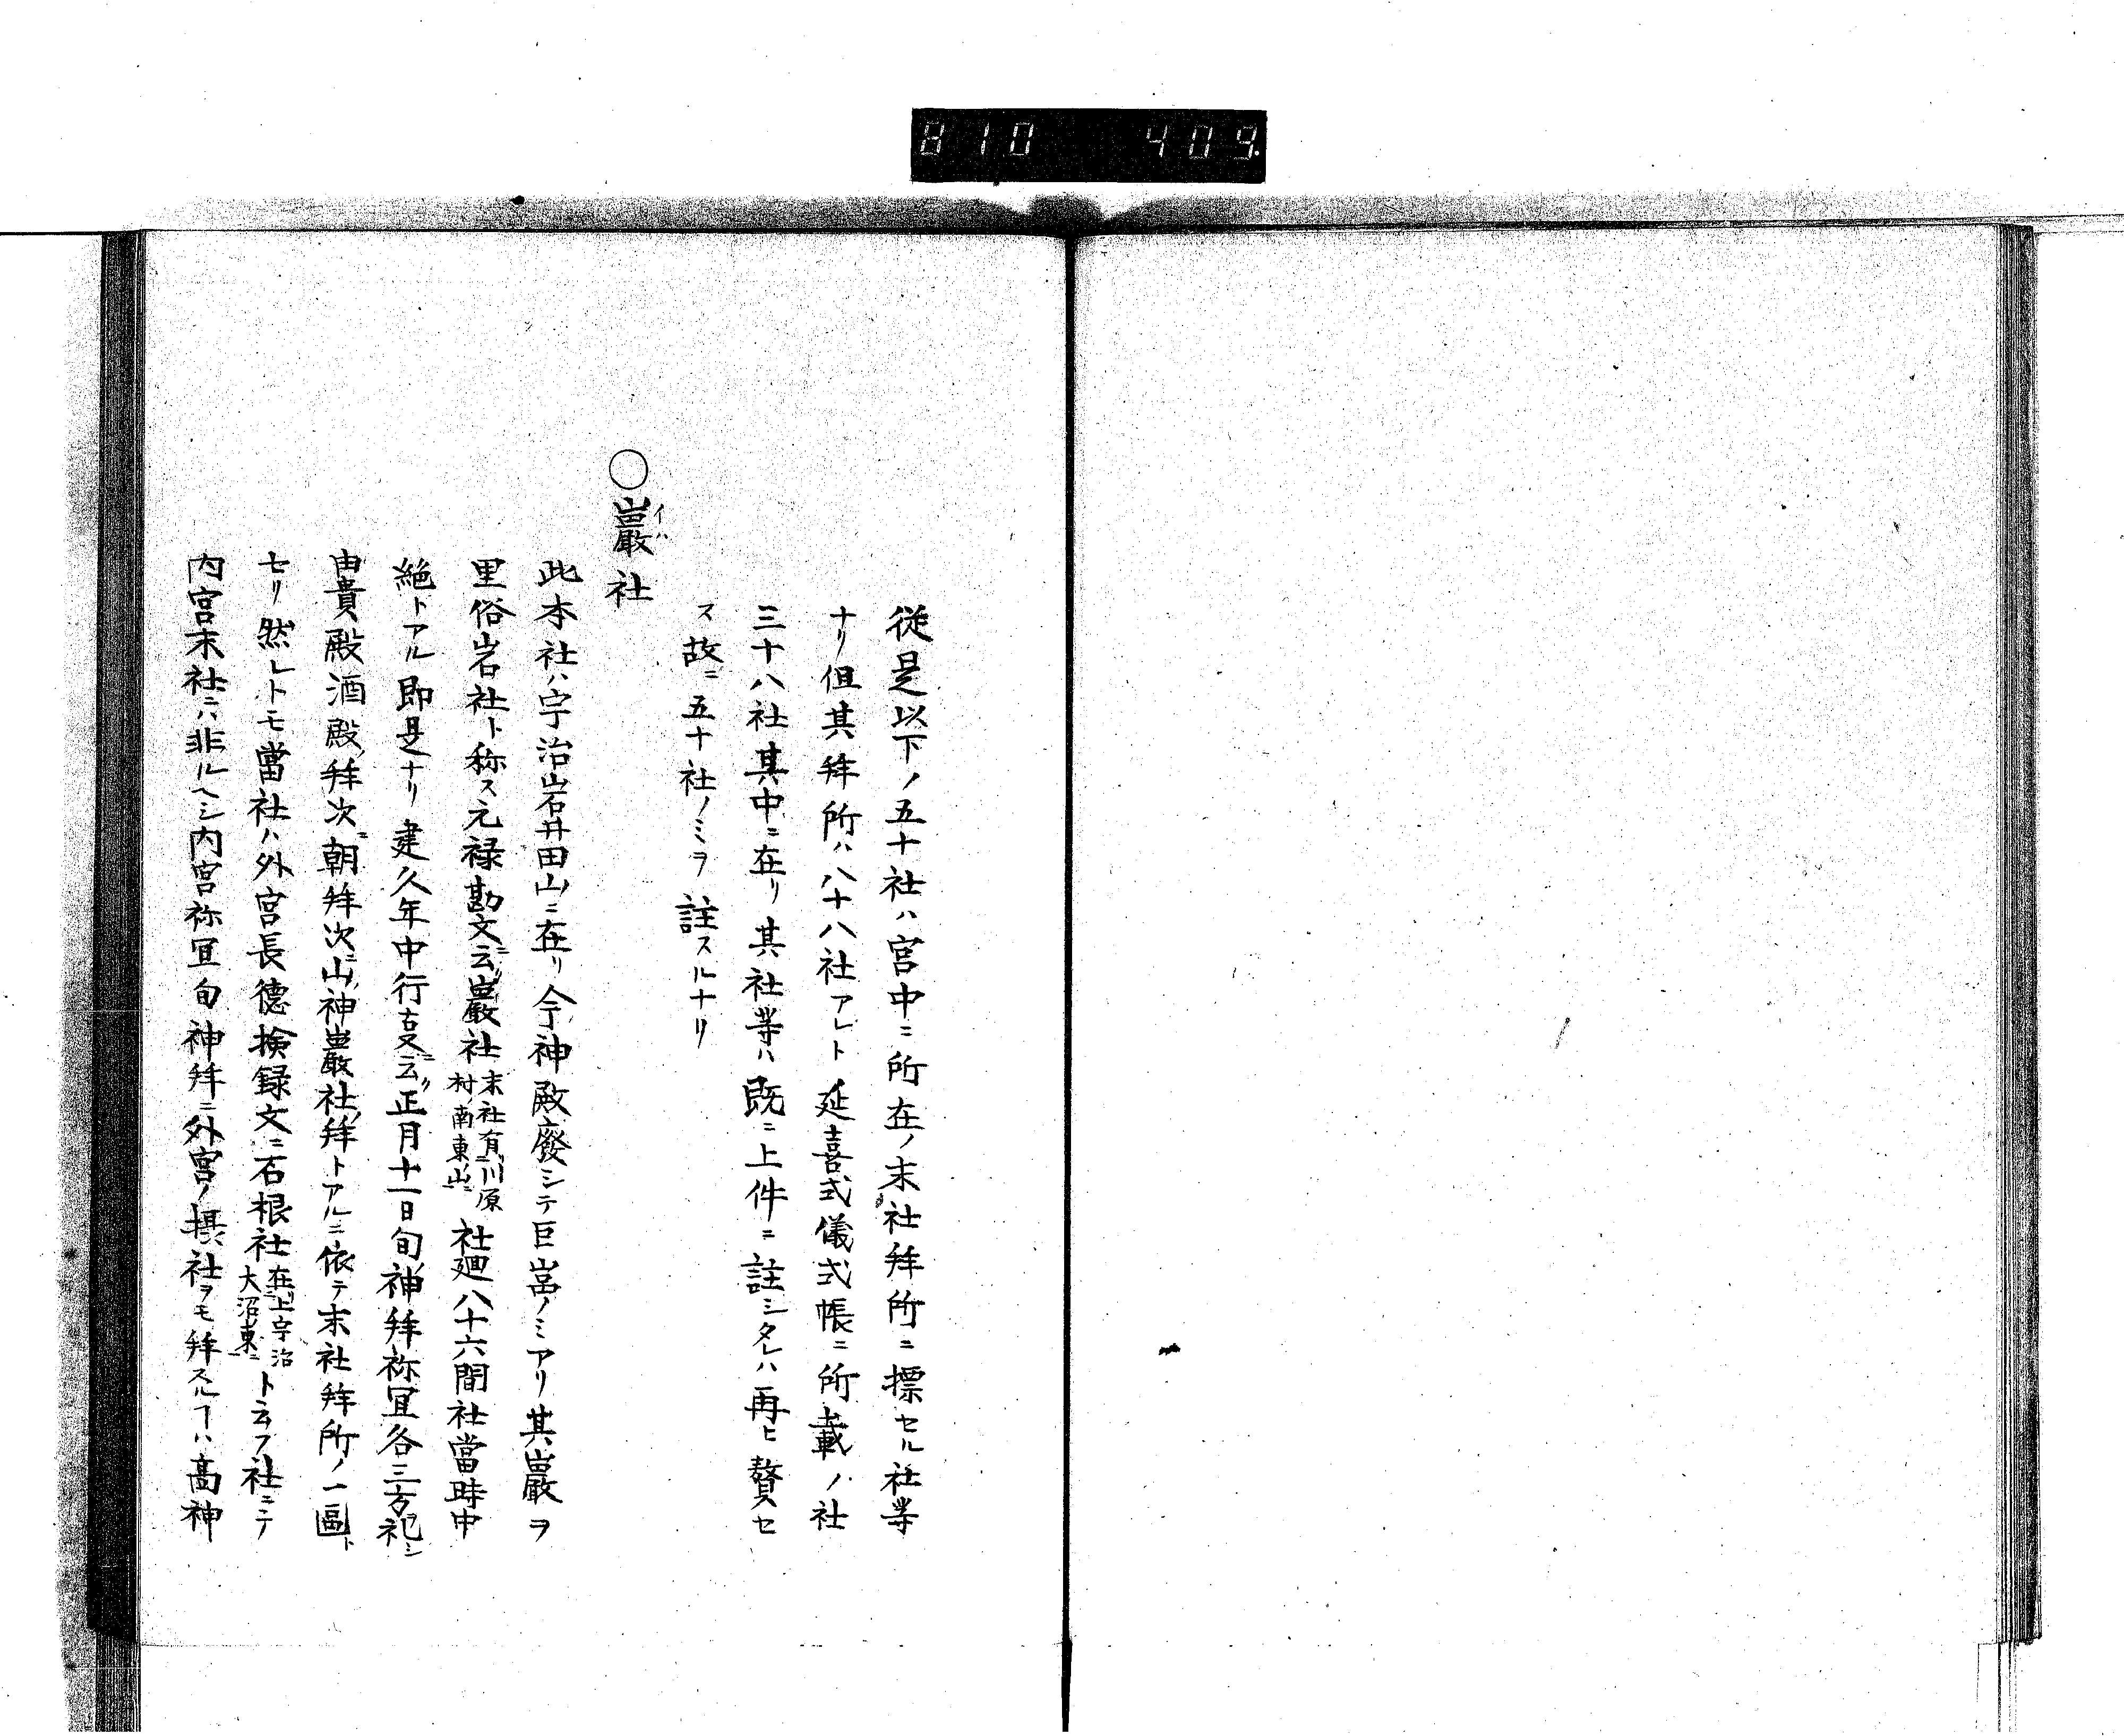 810 409
従是以下ノ五十社ハ宮中ニ所在ノ末社拜所ニ標セル社等
ナリ但其拜所ハ八十八社アレト延喜式儀式帳ニ所載ノ社
三十八社其中ニ在リ其社等ハ既ニ上件ニ註シタレハ再ヒ贅セ
ス故ニ五十社ノミヲ註スルナリ
○巖社
イハ
此本社ハ宇治岩井田山ニ在リ今神殿廢シテ巨嵓ノミアリ其巖ヲ
里俗岩社ト称ス元禄勘文ニ云巖社
末社有川原
村ノ南東山ニ
社廻八十六間社當時中
絶トアル即是ナリ建久年中行叓ニ云ク正月十一日旬ノ神拜祢宜各三方祀シ
由貴殿酒殿ノ拜次ニ朝拜次ニ山神巖社ノ拜トアルニ依テ末社拜所ノ一區ト
セリ然レトモ當社ハ外宮長德檢録文ニ石根社
在上宇治
大沼東ニ
ト云フ社ニテ
内宮末社ニハ非ルヘシ内宮祢宜旬神拜ニ外宮ノ摂社ヲモ拜スルヿハ高神